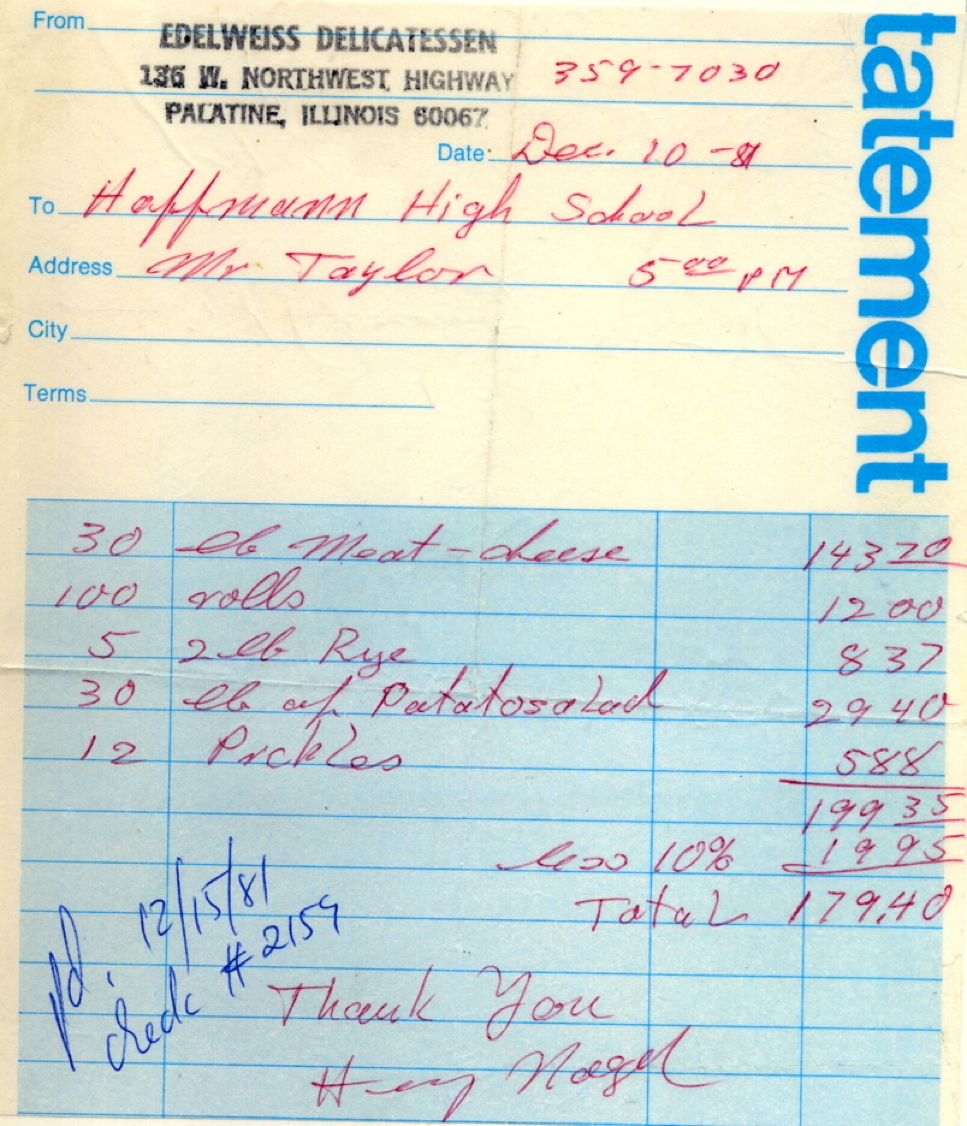 From
EDELWEISS DELICATESSEN
136 W. NORTHWEST HIGHWAY 359-7030
PALATINE, ILLINOIS 60067
Date: Dec. 10 -81
To Haffmann High School
Address Mr Taylor 5 00 PM
City
Terms
tatement
30 lb Meat-cheese 143 70
100 rolls 12 00
5 2 lb Rye 8 37
30 lb of Patatosalad 29 40
12 Prckles 5 88
199 35
less 10% 19 95
Total 179.40
pd. 12/15/81
check #2159
Thank You
Nagel